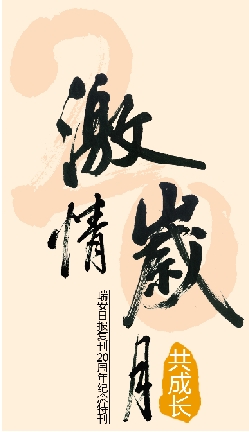 激情
歲月
瑞安日报复刊20周年纪念特刊
共成长
20